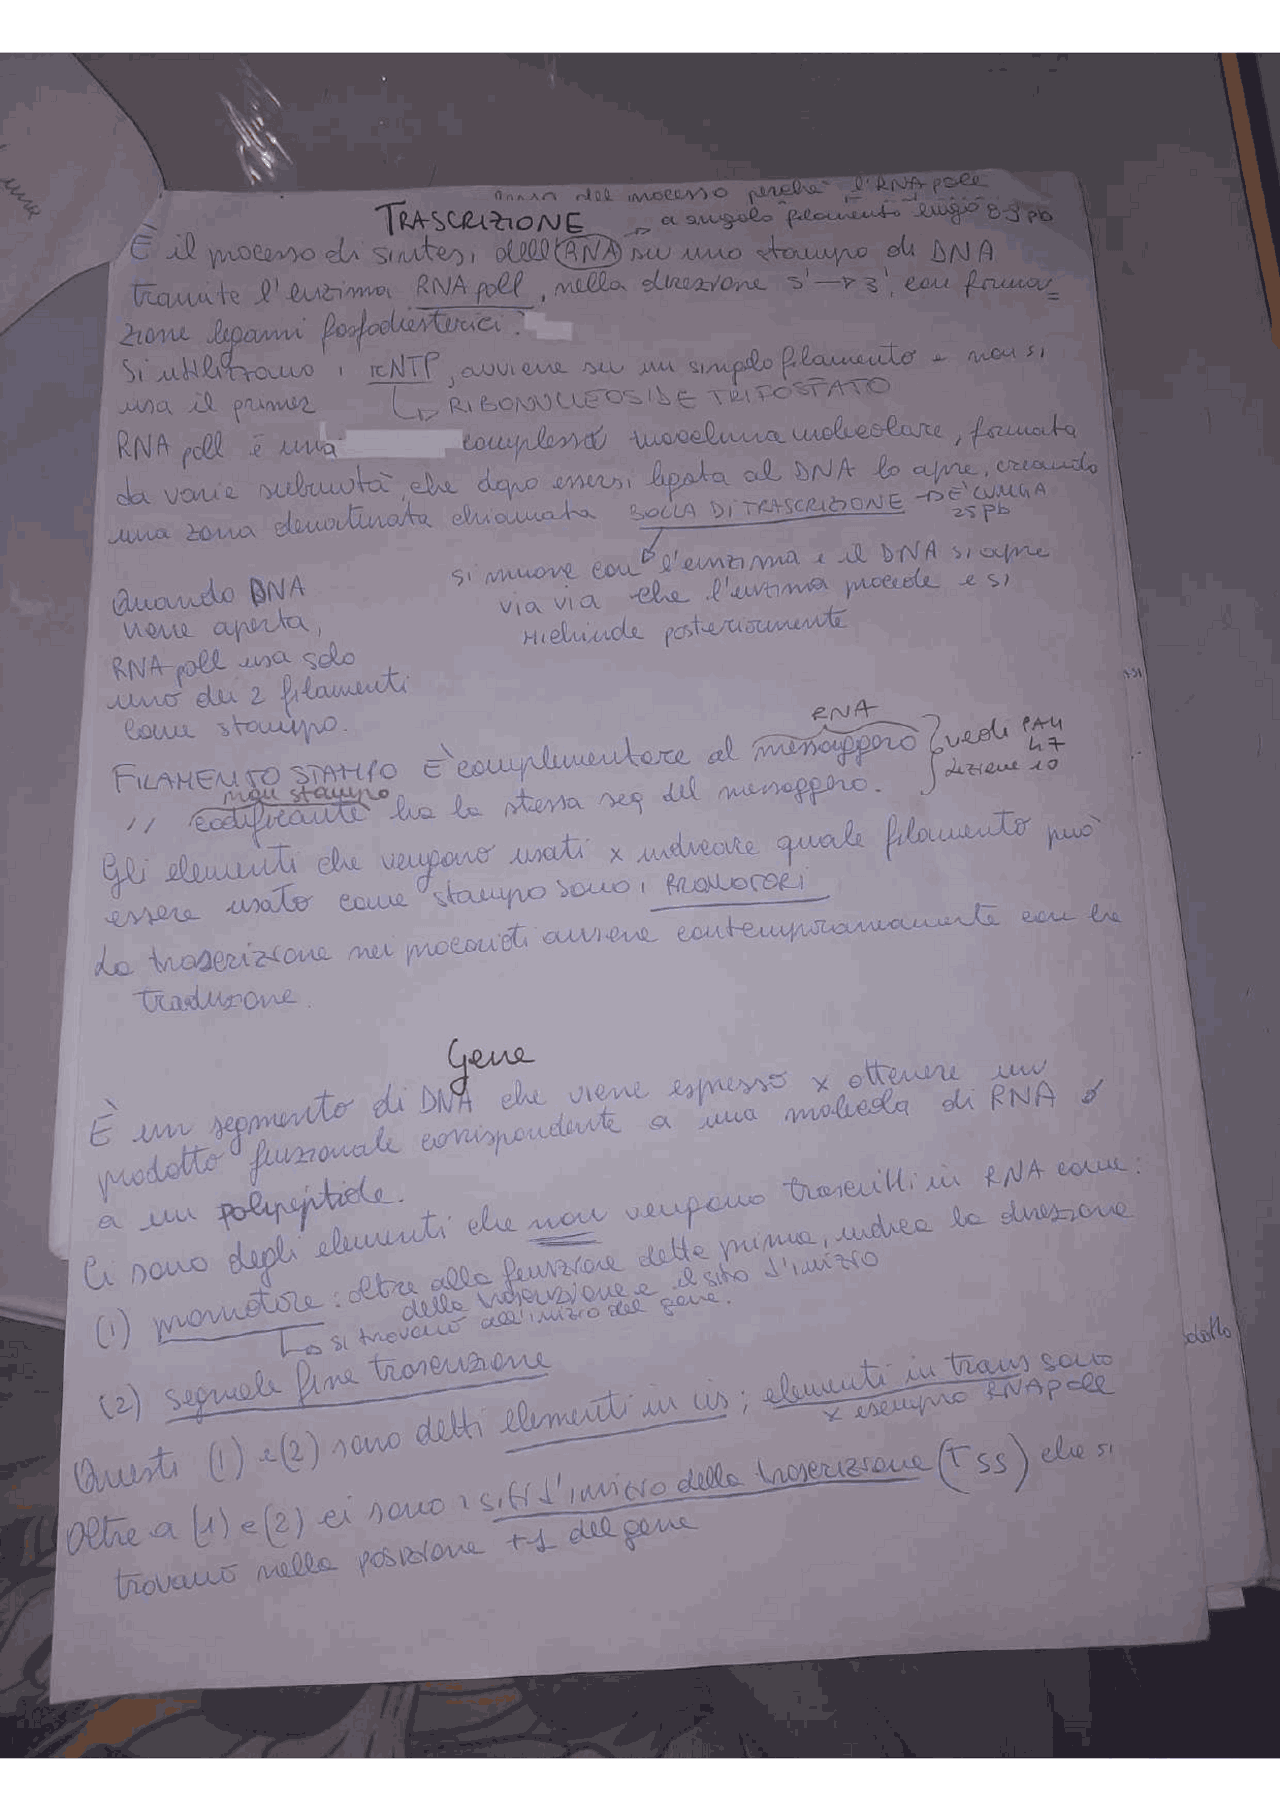 del processo perché l'RNA poll
TRASCRIZIONE
a singolo filamento lungo 8-9 pb
È il processo di sintesi dell'RNA su uno stampo di DNA
tramite l'enzima RNA poll, nella direzione 5'→3', con forma=
zione legami fosfodiesterici.
Si utilizzano i rNTP, avviene su un singolo filamento e non si
usa il primer
RIBONUCLEOSIDE TRIFOSTATO
RNA poll è una complessa macchina molecolare, formata
da varie subunità, che dopo essersi legata al DNA lo apre, creando
una zona denaturata chiamata BOLLA DI TRASCRIZIONE → È LUNGA
25 pb
si muove con l'enzima e il DNA si apre
via via che l'enzima procede e si
richiude posteriormente
Quando DNA
viene aperto,
RNA poll usa solo
uno dei 2 filamenti
come stampo.
RNA
FILAMENTO STAMPO È complementare al messaggero
vedi PAG
47
Lezione 10
non stampo
// codificante ha la stessa seq del messaggero.
Gli elementi che vengono usati x indicare quale filamento può
essere usato come stampo sono i PROMOTORI
La trascrizione nei procarioti avviene contemporaneamente con la
traduzione.
Gene
È un segmento di DNA che viene espresso x ottenere un
prodotto funzionale corrispondente a una molecola di RNA o
a un polipeptide.
Ci sono degli elementi che non vengono trascritti in RNA come:
(1) promotore: oltre alla funzione detta prima, indica la direzione
della trascrizione e il sito d'inizio
si trovano all'inizio del gene.
(2) segnale fine trascrizione
Questi (1) e (2) sono detti elementi in cis; elementi in trans sono
x esempio RNA poll
Oltre a (1) e (2) ci sono i siti d'inizio della trascrizione (TSS) che si
trovano nella posizione +1 del gene